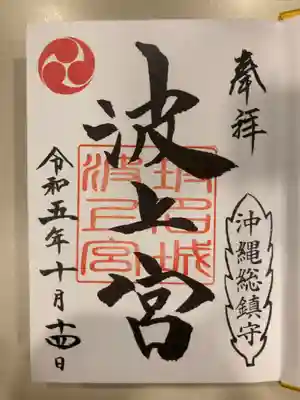 奉拝
沖縄総鎮守
波上宮
琉球城
波上宮
令和五年十月十四日